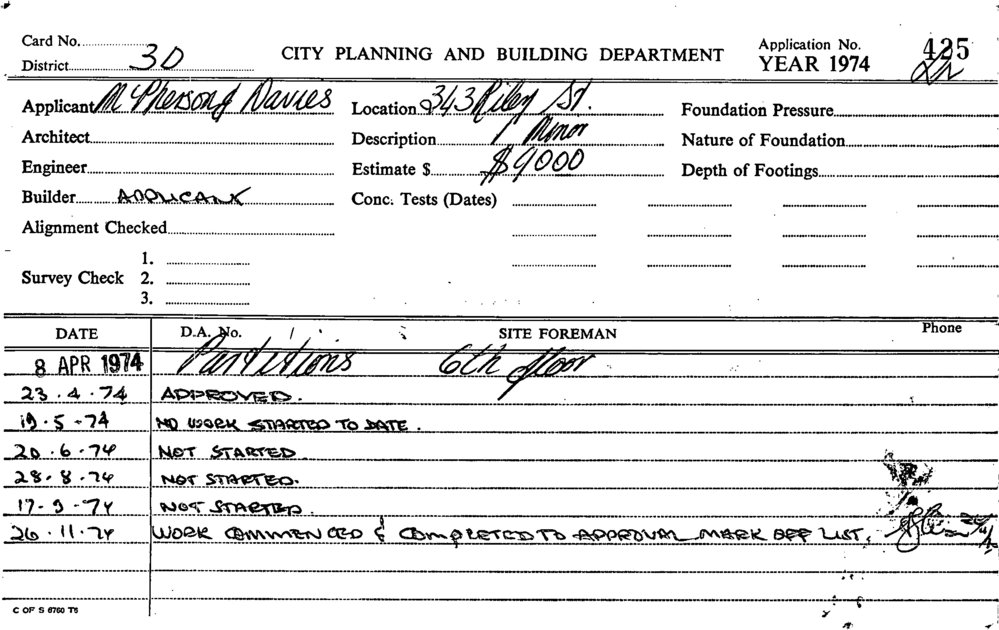 Card No.
District 3D
CITY PLANNING AND BUILDING DEPARTMENT
Application No. 425
YEAR 1974
Applicant McPherson & Davies
Location 343 Riley St.
Foundation Pressure
Architect
Description Minor
Nature of Foundation
Engineer
Estimate $ $9000
Depth of Footings
Builder APPLICANT
Conc. Tests (Dates)
Alignment Checked
Survey Check 1.
2.
3.
DATE D.A. No. SITE FOREMAN Phone
8 APR 1974 Partitions 6th floor
23.4.74 APPROVED.
19.5-74 NO WORK STARTED TO DATE.
20.6.74 NOT STARTED
28.8.74 NOT STARTED.
17-9-74 NOT STARTED.
26.11.74 WORK COMMENCED & COMPLETED TO APPROVAL MARK OFF LIST.
C OF S 6760 T5